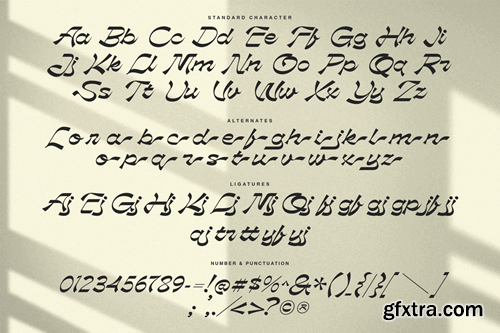 STANDARD CHARACTER
Aa Bb Cc Dd Ee Ff Gg Hh Ii
Jj Kk Ll Mm Nn Oo Pp Qq Rr
Ss Tt Uu Vv Ww Xx Yy Zz
ALTERNATES
L o r a- b- c- d- e- f- g- h- i- j- k- l- m- n-
o- p- q- r- s- t- u- v- w- x- y- z-
LIGATURES
Aj Ej Gj Hj Kj Lj Mj Qj fj gj aj gp jf jj
qj tr tt yf yj
NUMBER & PUNCTUATION
0123456789-=!@#$%^&*()_{}[\]
; ,./<>?©®
gfxtra.com